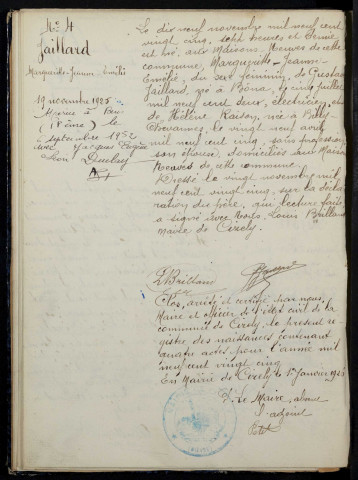 No 4
Jaillard
Marguerite-Jeanne-Emélie
19 novembre 1925
Mariée à
le
septembre 1952
avec Jacques
Le dix neuf novembre mil neuf cent
vingt cinq, sept heures et demie,
est née aux Maisons Neuves de cette
commune, Marguerite-Jeanne-
Emélie, du sexe féminin, de Gustave
Jaillard, né à Bona, le cinq juillet
mil neuf cent deux, électricien, et
de Hélène Raison, née à Billy-
Chevannes, le vingt neuf avril
mil neuf cent cinq, sans profession,
son épouse, domiciliés aux Maisons
Neuves de cette commune.
Dressé le vingt novembre mil
neuf cent vingt cinq, sur la décla-
ration du père, qui, lecture faite
a signé avec Nous, Louis Brilland
maire de Cizely.
LBrilland
Clos, arrêté et certifié par nous,
Maire et officier de l'état civil de la
commune de Cizely, le présent re-
gistre des naissances contenant
quatre actes pour l'année mil
neuf cent vingt cinq
En Mairie de Cizely le 1er Janvier 1926
P. Le Maire, absent
L'adjoint